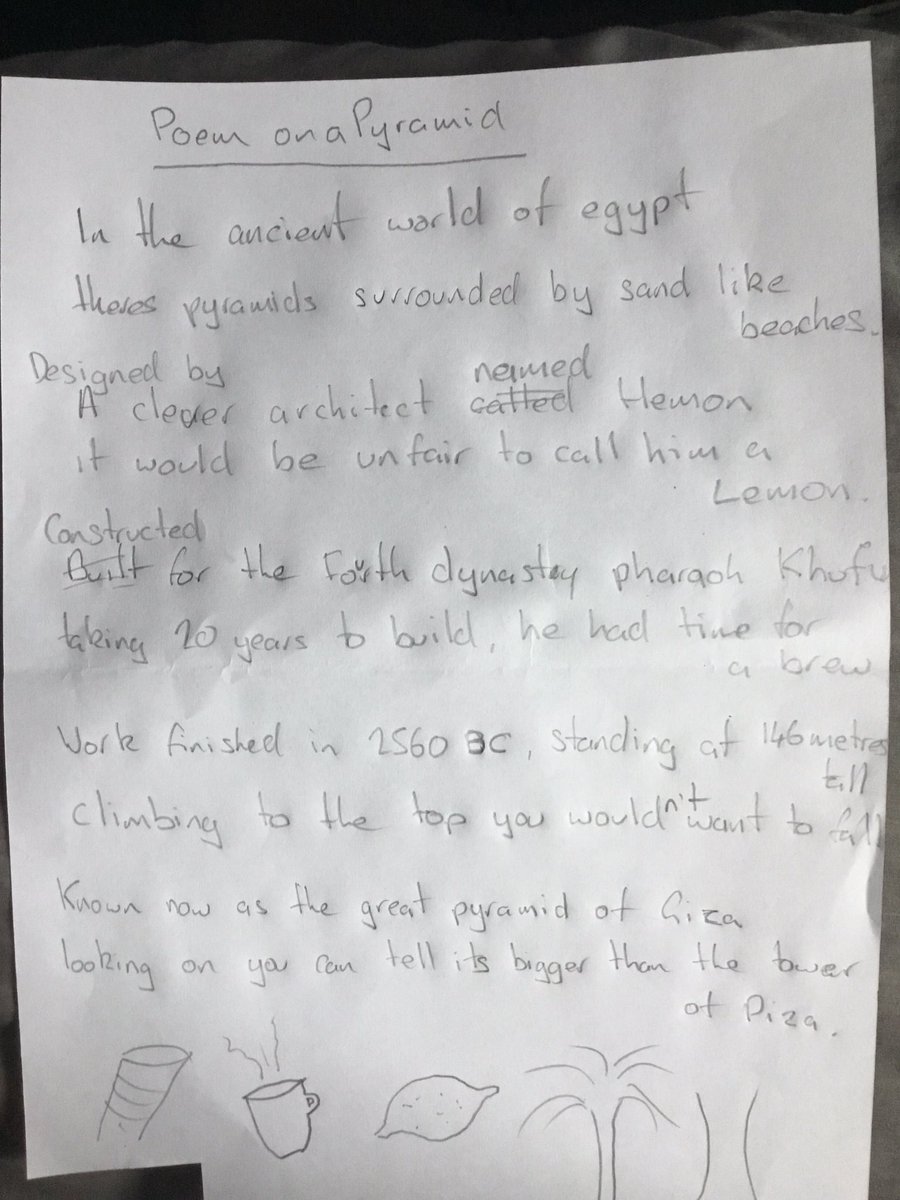 Poem on a Pyramid
In the ancient world of egypt
theres pyramids surrounded by sand like
beaches.
Designed by
A clever architect called named Hemon
it would be unfair to call him a
Lemon.
Constructed
Built for the Fourth dynastey pharaoh Khufu
taking 20 years to build, he had time for
a brew
Work finished in 2560 BC, standing at 146 metres
tall
Climbing to the top you wouldn't want to fall
Known now as the great pyramid of Giza
looking on you can tell its bigger than the tower
of Piza.